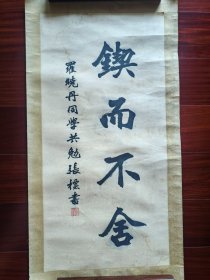 鍥而不舍
羅曉丹同學共勉張標書